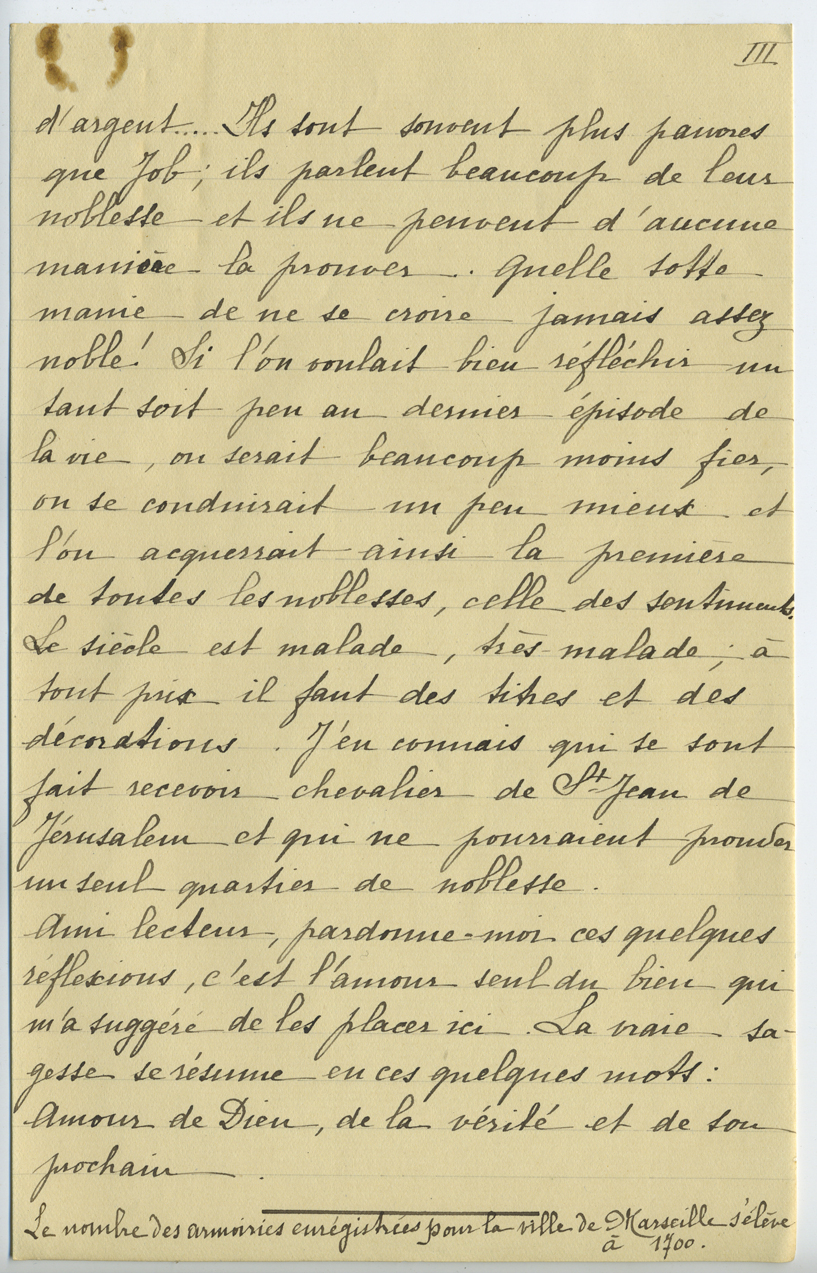 III
d'argent..... Ils sont souvent plus pauvres
que Job ; ils parlent beaucoup de leur
noblesse et ils ne peuvent d'aucune
manière la prouver .. Quelle sotte
manie de ne se croire jamais assez
noble! Si l'on voulait bien réfléchir un
tant soit peu au dernier épisode de
la vie , on serait beaucoup moins fier,
on se conduirait un peu mieux et
l'on acquerrait ainsi la première
de toutes les noblesses, celle des sentiments.
Le siècle est malade , très malade ; à
tout prix il faut des titres et des
décorations . J'en connais qui se sont
fait recevoir chevalier de St-Jean de
Jérusalem et qui ne pourraient prouver
un seul quartier de noblesse .
Ami lecteur, pardonne-moi ces quelques
réflexions , c'est l'amour seul du bien qui
m'a suggéré de les placer ici . La vraie sa-
gesse se résume en ces quelques mots :
Amour de Dieu , de la vérité et de son
prochain .
Le nombre des armoiries enrégistrées pour la ville de Marseille s'élève
à 1700.